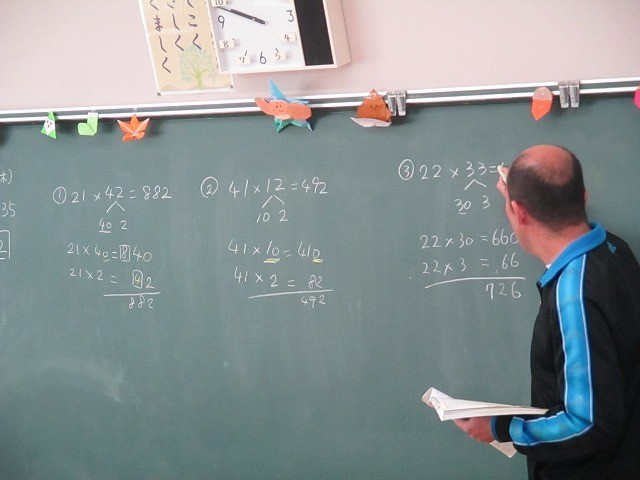 9
3
8
4
7
6
5
35
① 21 × 42 = 882
40 2
21 × 40 = 840
21 × 2 = 42
882
② 41 × 12 = 492
10 2
41 × 10 = 410
41 × 2 = 82
492
③ 22 × 33 =
30 3
22 × 30 = 660
22 × 3 = 66
726